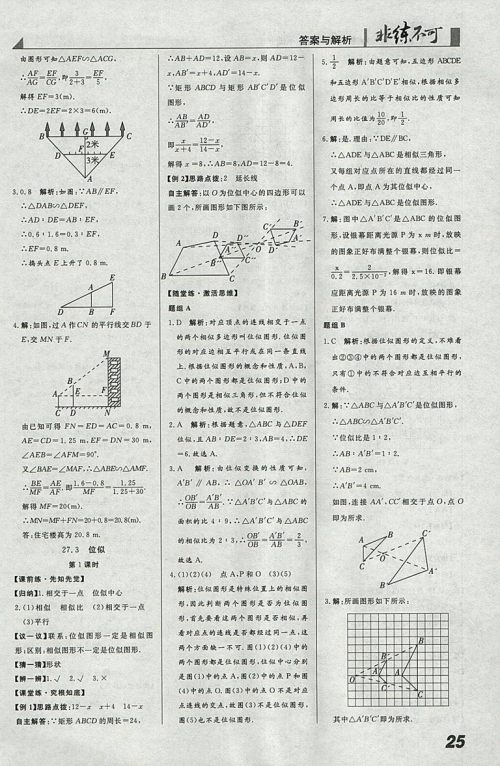 答案与解析 非练不可
由图形可知△AEF∽△ACG,
∴AF/AG=EF/CG,即3/(2+3)=EF/5,
解得 EF=3(m).
∴DE=2EF=2×3=6(m).
B G C
2米
D F E
3米
A
3.0.8 解析:如图:∵AB∥EF,
∴△DAB∽△DEF,
∴AD∶DE=AB∶EF,
∴0.6∶1.6=0.3∶EF,
∴EF=0.8 m.
∴捣头点E上升了0.8 m.
E
D A B F
4.解:如图,过A作CN的平行线交BD于
E,交MN于F.
M
B
A E F
C D N
由已知可得FN=ED=AC=0.8 m,
AE=CD=1.25 m,EF=DN=30 m,
∠AEB=∠AFM=90°.
又∠BAE=∠MAF,∴△ABE∽△AMF.
∴BE/MF=AE/AF,即(1.6-0.8)/MF=1.25/(1.25+30).
解得MF=20(m).
∴MN=MF+FN=20+0.8=20.8(m).
答:住宅楼高为20.8 m.
27.3 位似
第1课时
【课前练·先知先觉】
【归纳】1.相交于一点 位似中心
2.(1)相似 相似比 (2)相交于一点
(3)平行
【议一议】联系:位似图形一定是相似图
形;区别:相似图形不一定是位似图形.
【猜一猜】形状
【辨一辨】1.√ 2.√ 3.×
【课堂练·究根知底】
【例1】思路点拨:12-x x+4 14-x
自主解答:∵矩形ABCD的周长=24,
∴AB+AD=12,设AB=x,则AD=12-
x,AB'=x+4,AD'=14-x.
∵矩形ABCD与矩形AB'C'D'是位似
图形,
∴AB/AB'=AD/AD',
即x/(x+4)=(12-x)/(14-x),
解得x=8,∴AB=8,AD=12-8=4.
【例2】思路点拨:2 延长线
自主解答:以O为位似中心的四边形可以
画2个,所画图形如下图所示:
【随堂练·激活思维】
题组A
1.D 解析:对应顶点的连线相交于一点
的两个相似多边形叫位似图形.位似图
形的对应边相互平行或在同一条直线
上.根据位似图形的概念和性质,A,B,
C中的两个图形都是位似图形;D中的
两个图形是相似三角形,但不符合位似
的概念和性质,故不是位似图形.
2.A 解析:根据题意,△ABC与△DEF
位似,且AB∶DE=2∶3,AB=4,∴DE
=6.故选A.
3.A 解析:由位似变换的性质可知,
A'B'∥AB,∴△OA'B'∽△OAB,
∴OB'/OB=A'B'/AB.∵△A'B'C'与△ABC的
面积的比4∶9,∴△A'B'C'与△ABC
的相似比为2∶3,∴OB'/OB=A'B'/AB=2/3,
故选A.
4.(1)(2)(4) 点A、P和O (3)(5)
解析:位似图形是特殊位置上的相似图
形,因此判断两个图形是否为位似图
形,首先要看这两个图形是否相似,再
看对应点的连线是否都经过同一点,这
两个方面缺一不可.图(1)(2)(4)中的
两个图形都是位似图形,位似中心分别
是图(1)中的点A,图(2)中的点P和图
(4)中的点O.图(3)中的点O不是对应
点连线的交点,故图(3)不是位似图形,
图(5)也不是位似图形.
5.1/2 解析:由题意可知,五边形ABCDE
和五边形A'B'C'D'E'相似,根据相似多
边形周长的比等于相似比的性质可知
周长的比值为10/20,即1/2.
6.解:是.理由:∵DE∥BC,
∴△ADE与△ABC是相似三角形,
又每组对应点所在的直线都经过同一
个点A,即点A为其位似中心,
∴△ADE与△ABC是位似图形.
7.解:图中△A'B'C'是△ABC的位似图
形,设银幕距离光源P为x m时,放映
的图象正好布满整个银幕,则位似比=
x/0.2=2/(2.5×10⁻²),解得x=16.即银幕
应距离光源P为16 m时,放映的图象
正好布满整个银幕.
题组B
1.C 解析:根据位似图形的定义,不难看
出②③④中的两个图形都是位似图形,
只有①中的不符合对应边互相平行的
条件.
2.解:∵△ABC与△A'B'C'是位似图形,
∴△ABC∽△A'B'C'.
∵位似比是1∶2,
∴AB∶A'B'=1∶2.
∵AB=2 cm,
∴A'B'=4 cm.
如图,连接AA',CC'相交于点O,点O
即为所求.
A B C'
O
C A'
B'
3.解:所画图形如下所示:
B'
B
A A'
C
C'
其中△A'B'C'即为所求.
25